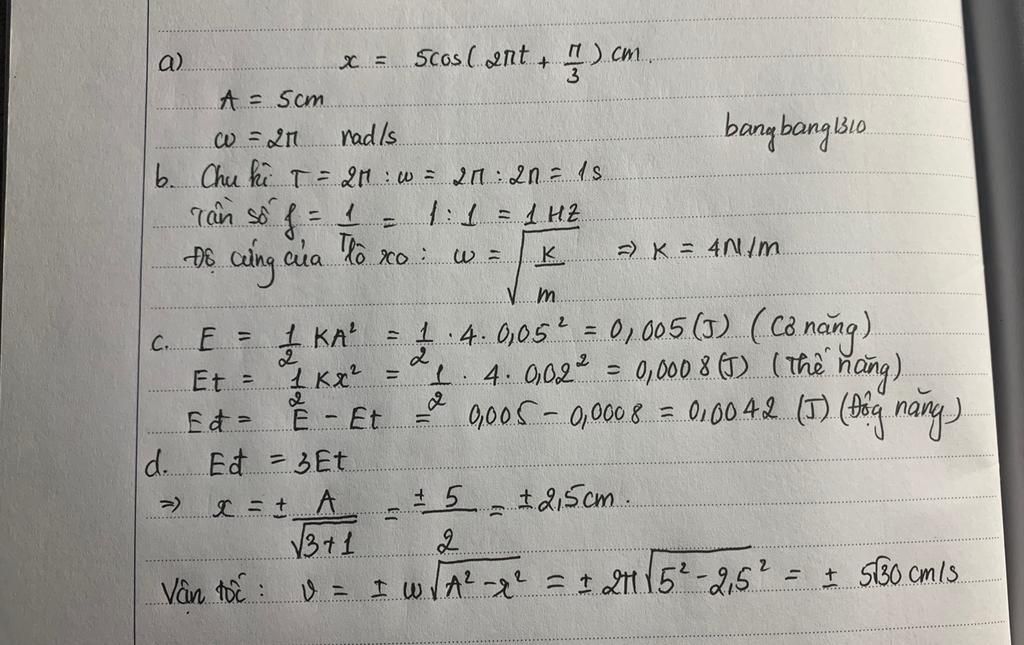 a) x = 5cos(2πt + π/3) cm.
A = 5cm
ω = 2π rad/s
bangbang1310
b. Chu kì T = 2π : ω = 2π : 2π = 1s
Tần số f = 1/T = 1 : 1 = 1 HZ
Độ cứng của lò xo : ω = √(K/m) ⇒ K = 4N/m
c. E = 1/2 KA² = 1/2 . 4. 0,05² = 0,005 (J) (Cơ năng)
Et = 1/2 Kx² = 1/2 . 4. 0,02² = 0,0008 (J) (Thế năng)
Eđ = E - Et = 0,005 - 0,0008 = 0,0042 (J) (Động năng)
d. Eđ = 3Et
⇒ x = ± A/√(3+1) = ± 5/2 = ± 2,5cm.
Vận tốc : v = ± ω√(A² - x²) = ± 2π√(5² - 2,5²) = ± 5√30 cm/s